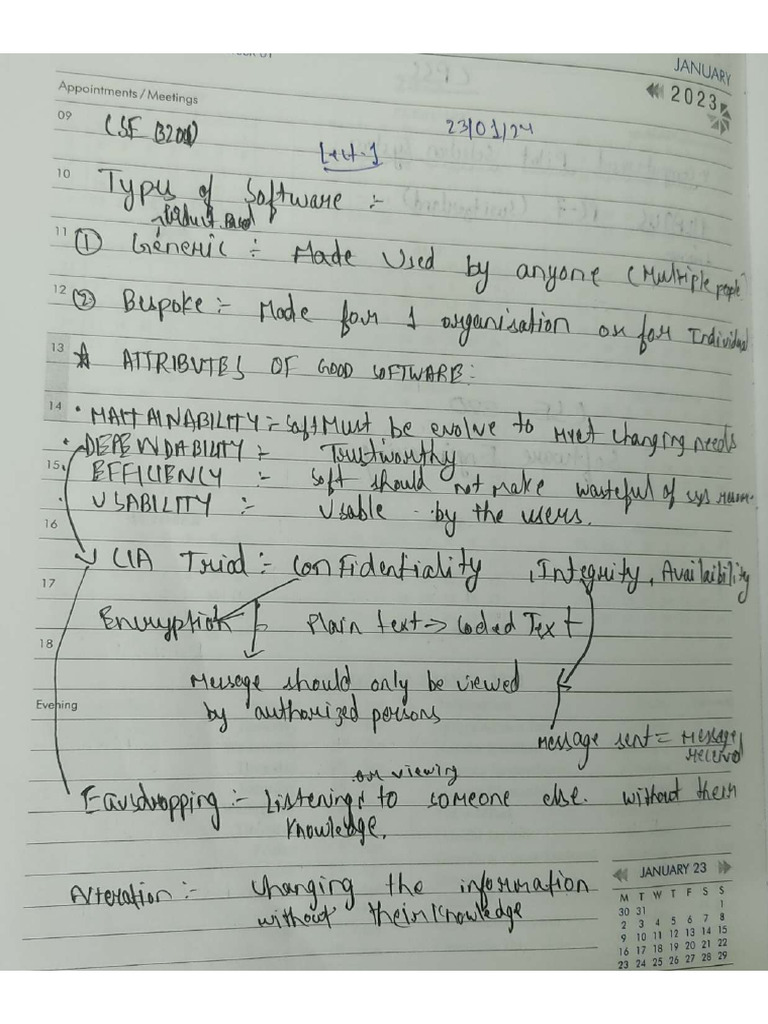 JANUARY
Appointments / Meetings
2023
09
CSF 3201
23/01/24
Lect-1
10 Types of Software :-
Product Based
11 ① Generic :- Made Used by anyone (Multiple people
12 ② Bespoke :- Made for 1 organisation or for Individual
13 ☆ ATTRIBUTES OF GOOD SOFTWARE:
14 • MAITAINABILITY :- Soft Must be evolve to Myet Changing needs
• DEPENDABILITY :- Trustworthy
15 • EFFICIENCY :- Soft should not make wasteful of sys
• USABILITY :- Usable by the users.
16
CIA Triad :- Confidentiality , Integrity, Availaibility
17
Encryption Plain text → Coded Text
18
Message should only be viewed
Evening
by authorized persons
Message sent = Message
received
or viewing
Eavsdropping :- Listening to someone else. without their
Knowledge.
Alteration :- Changing the information
without their Knowledge
JANUARY 23
M T W T F S S
30 31 1
2 3 4 5 6 7 8
9 10 11 12 13 14 15
16 17 18 19 20 21 22
23 24 25 26 27 28 29